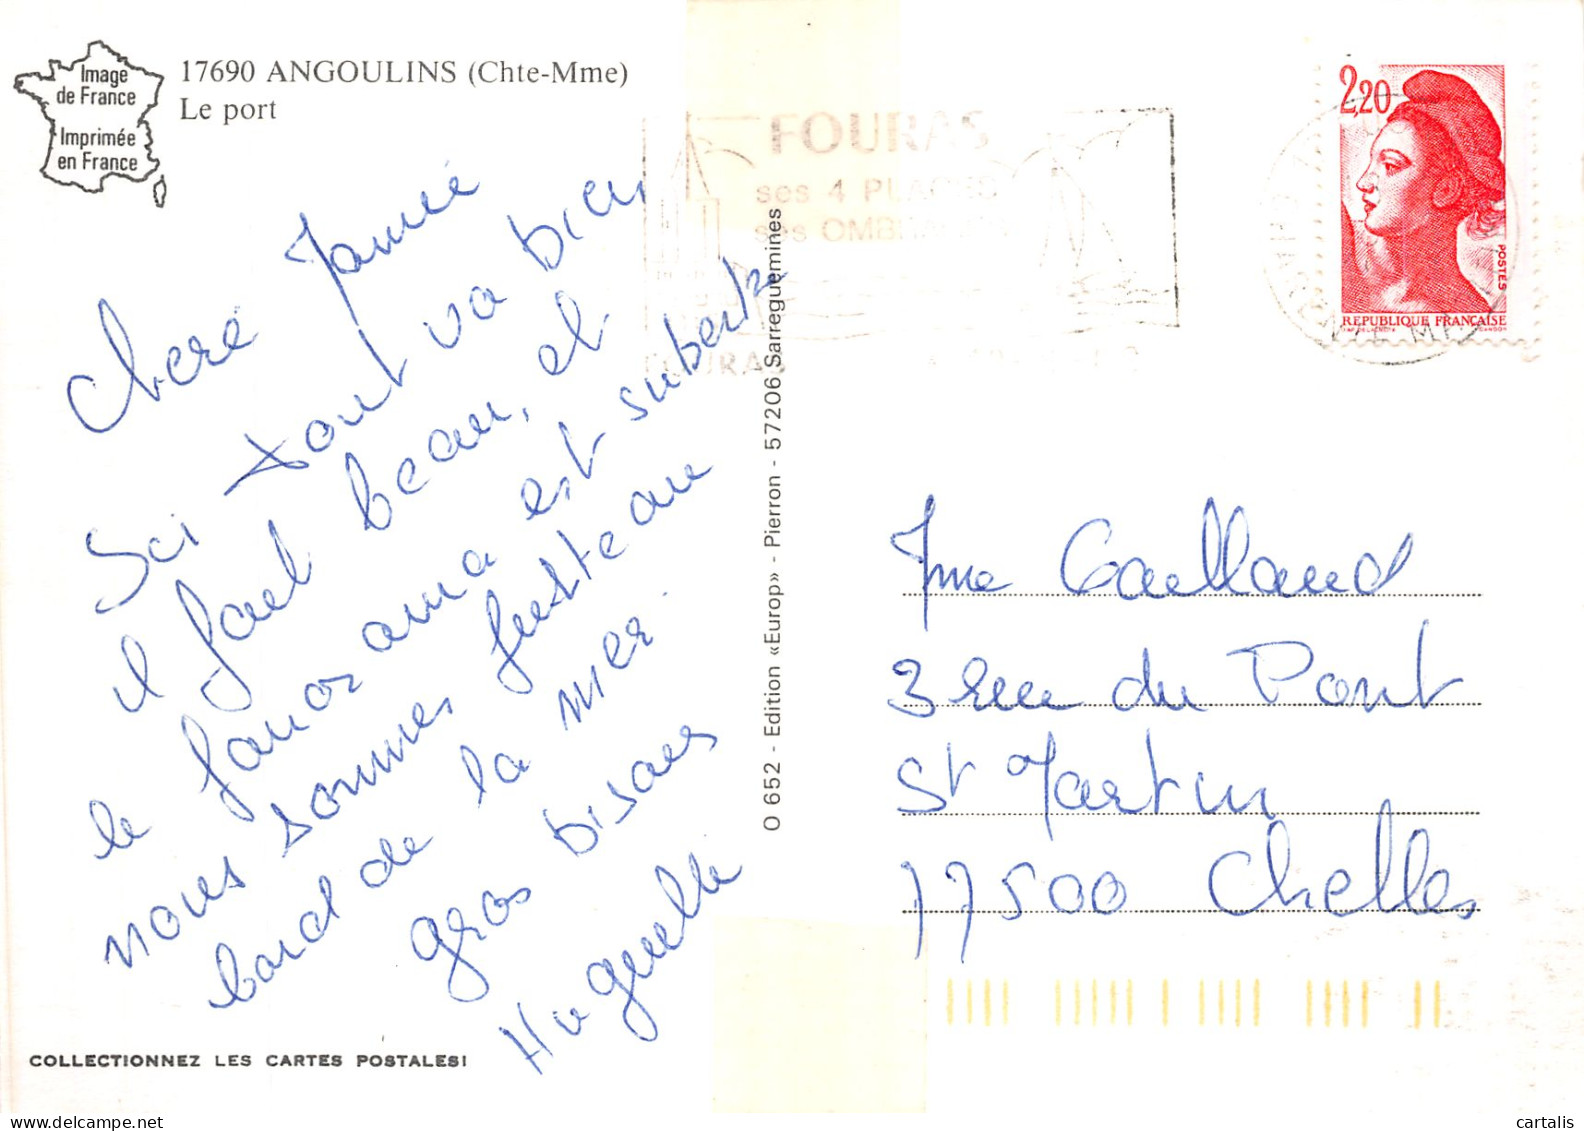 Image
de France
Imprimée
en France
17690 ANGOULINS (Chte-Mme)
Le port
FOURAS
ses 4 PLAGES
ses OMBRAGES
FOURAS
2,20
POSTES
REPUBLIQUE FRANÇAISE
GANDON
Chere Mamie
Ici tout va bien
il fait beau, et
le panorama est superbe
nous sommes juste au
bord de la mer.
gros bisous
Huguette
O 652 - Edition «Europ» - Pierron - 57206 Sarreguemines
Mme Gailland
3 rue du Pont
St Martin
77500 Chelles
COLLECTIONNEZ LES CARTES POSTALES!
cartalis